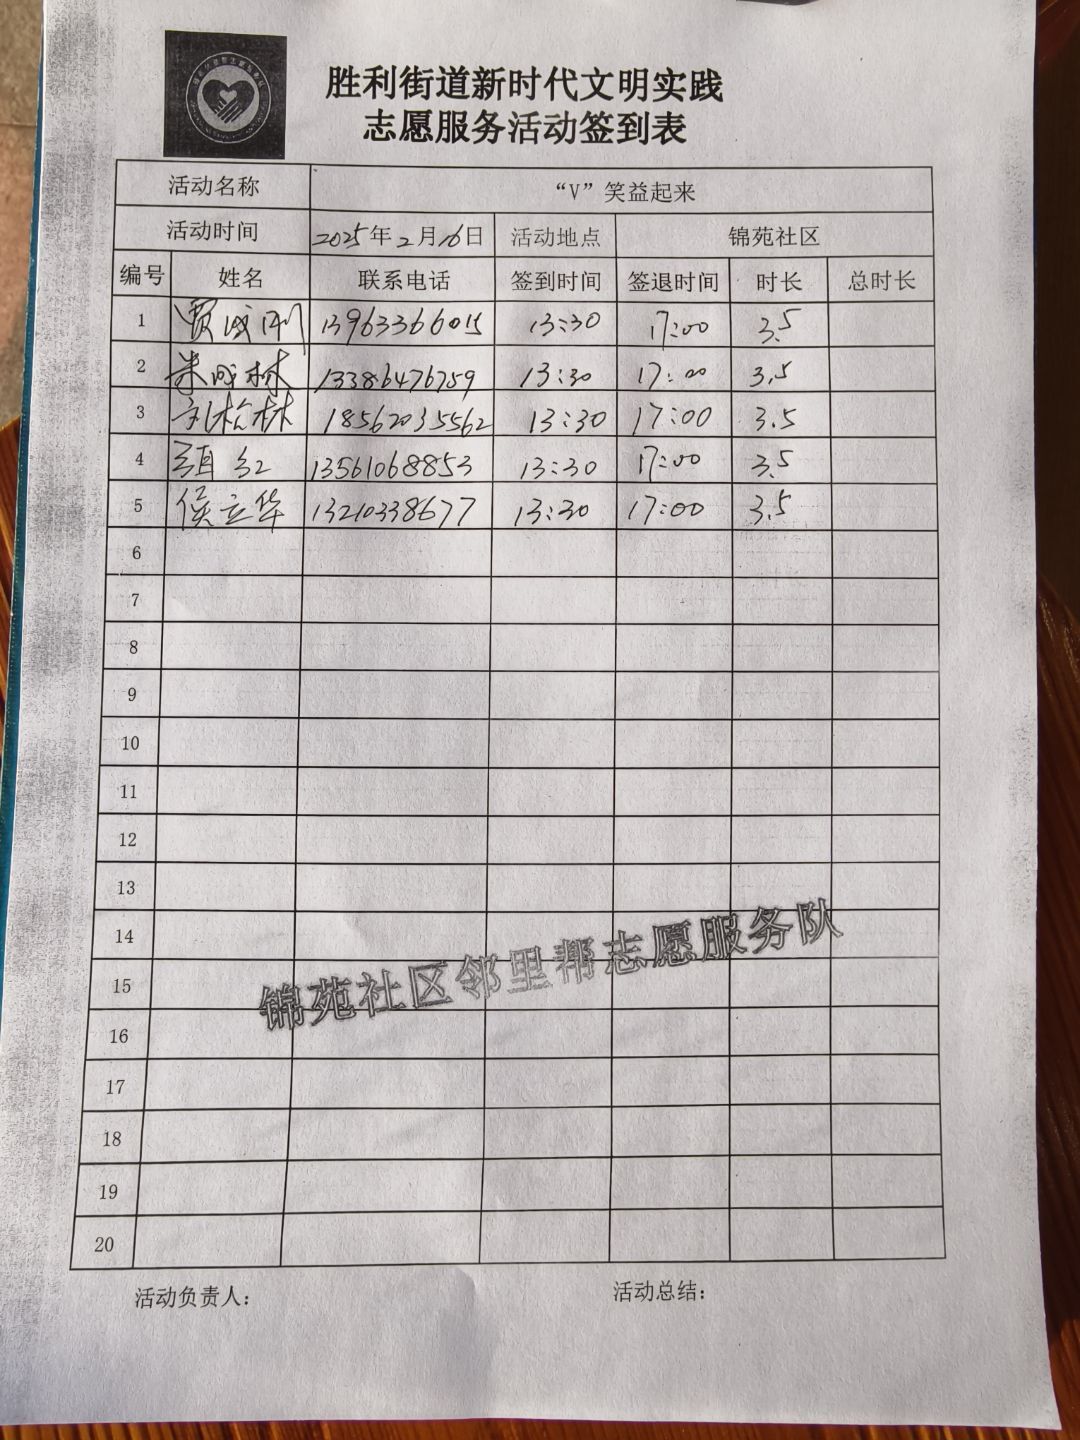 胜利街道新时代文明实践
志愿服务活动签到表
活动名称 “V”笑益起来
活动时间 2025年2月16日 活动地点 锦苑社区
编号 姓名 联系电话 签到时间 签退时间 时长 总时长
1 贾成刚 13963366015 13:30 17:00 3.5
2 朱成林 13386476759 13:30 17:00 3.5
3 刘松林 18562035562 13:30 17:00 3.5
4 红 13561068853 13:30 17:00 3.5
5 侯立华 13210338677 13:30 17:00 3.5
6
7
8
9
10
11
12
13
14
15
16
17
18
19
20
锦苑社区邻里帮志愿服务队
活动负责人： 活动总结：